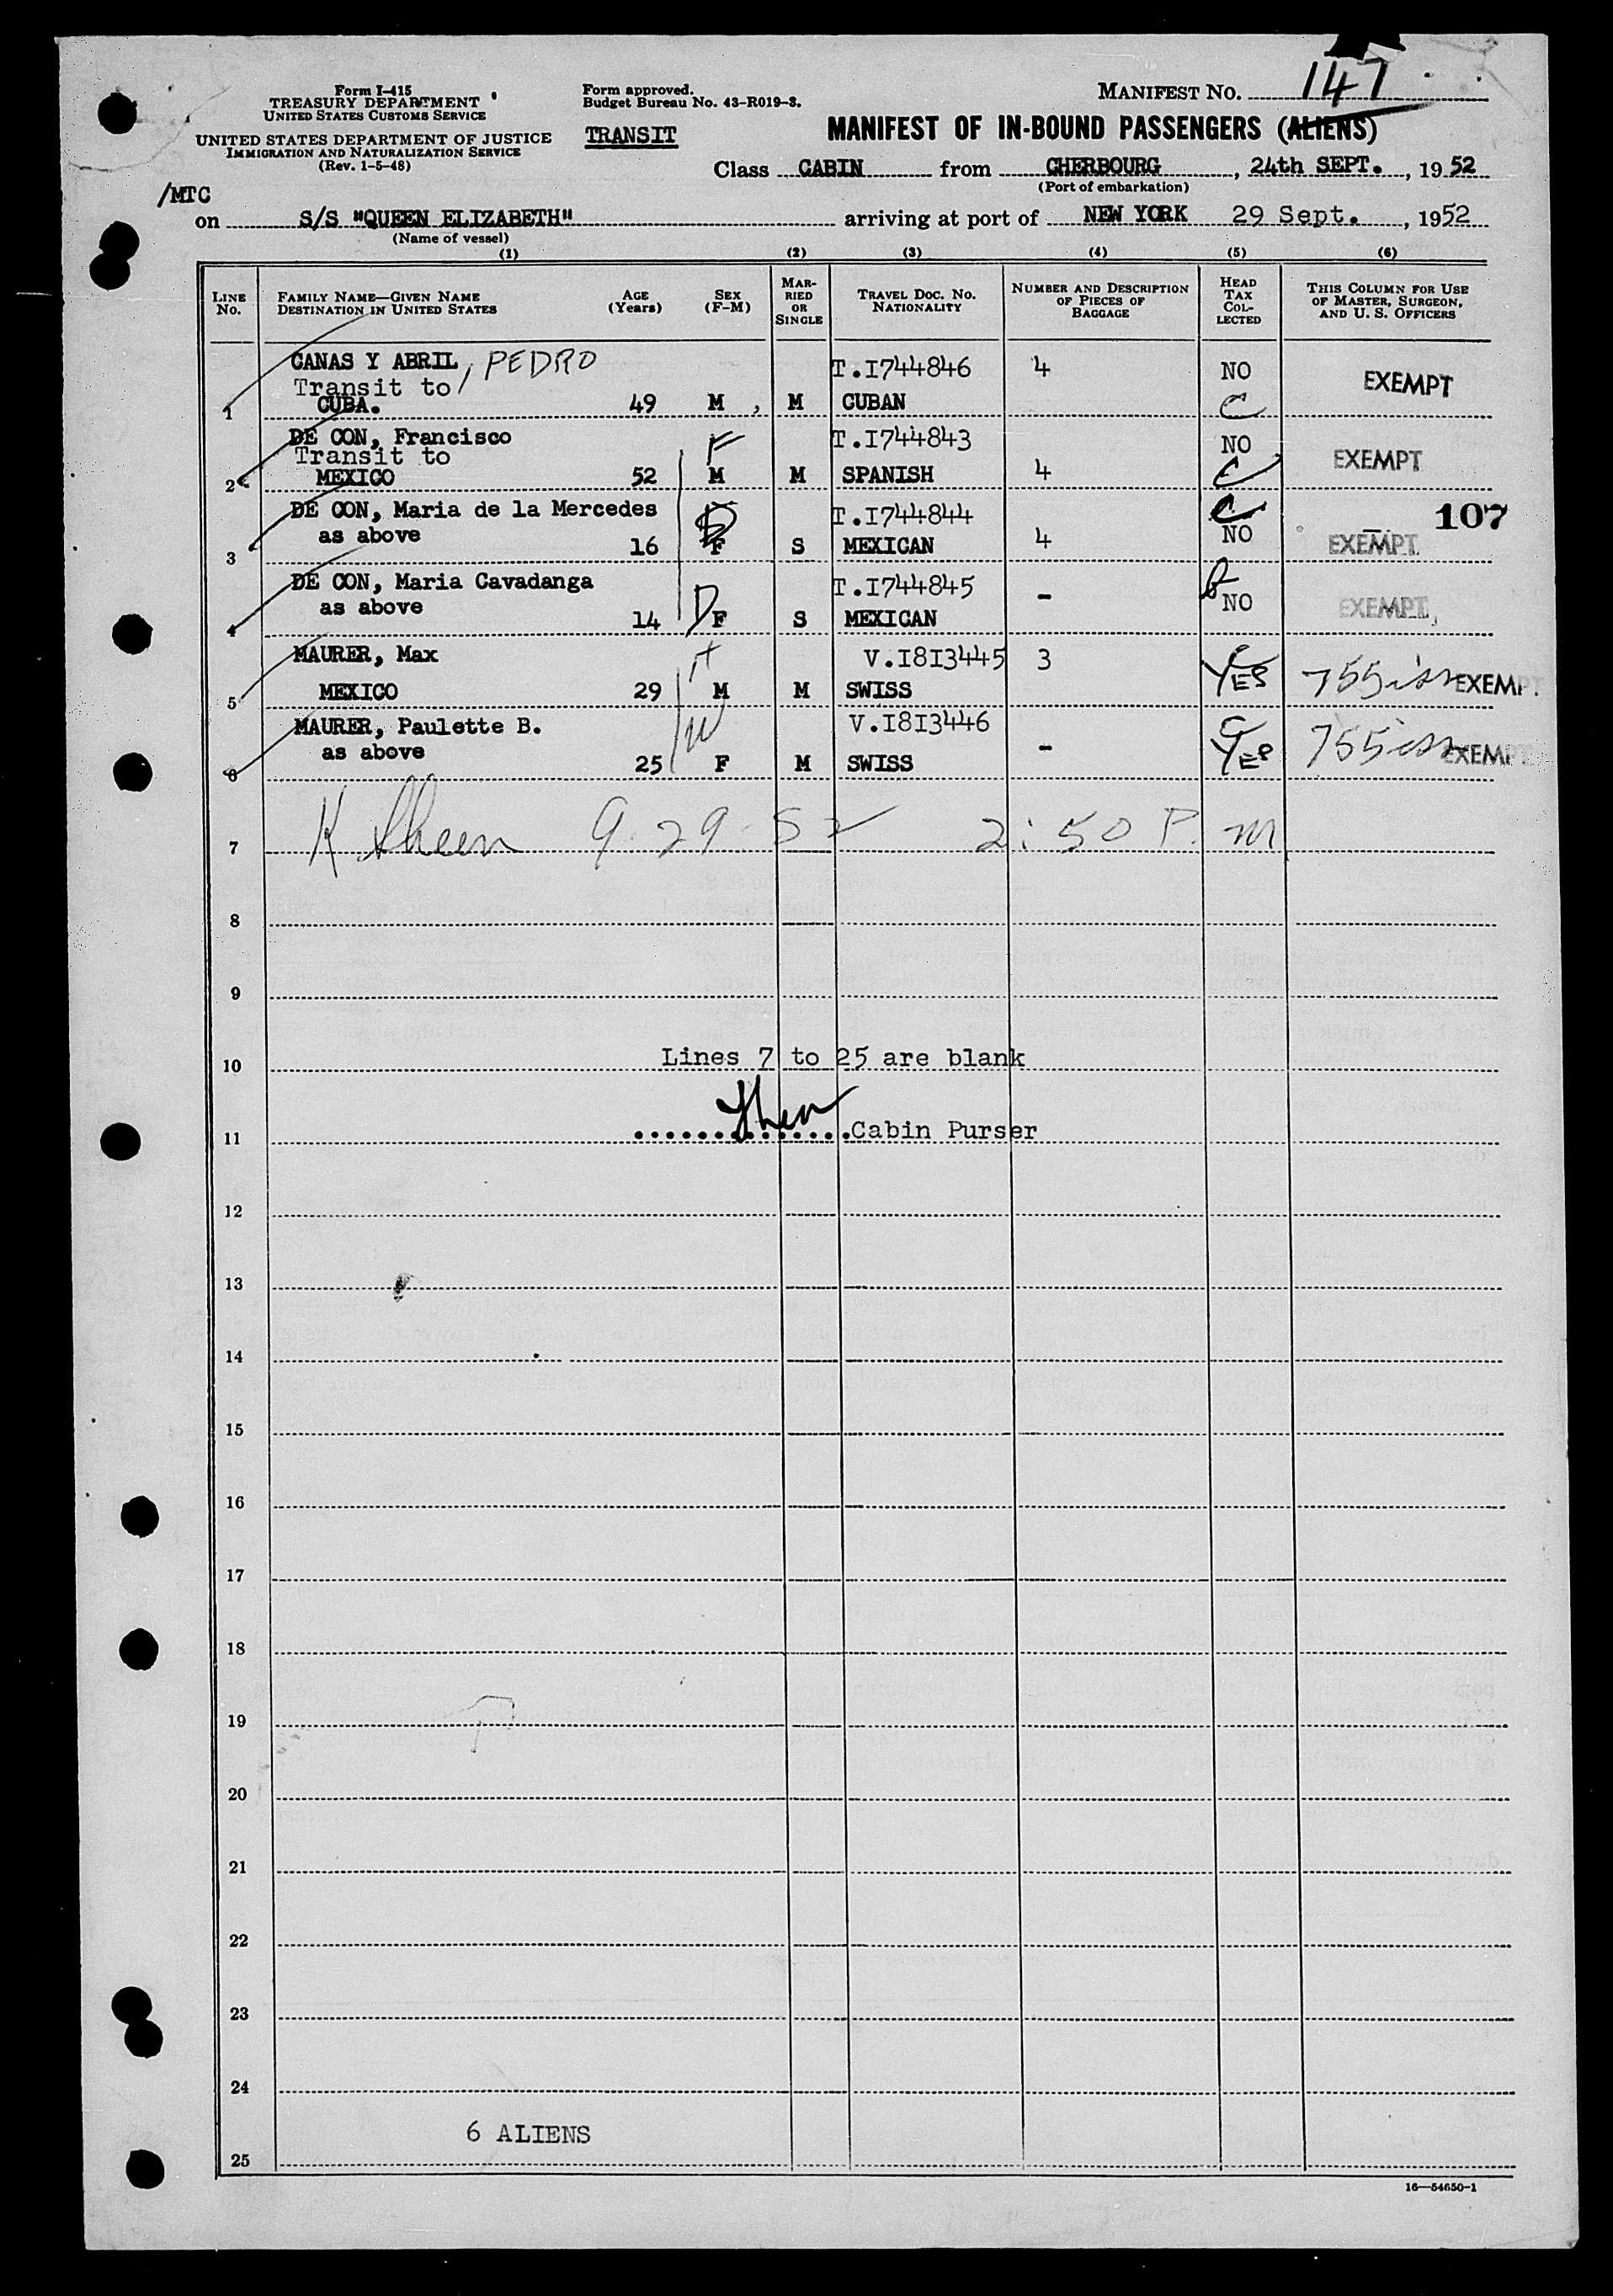 Form I-415
TREASURY DEPARTMENT
UNITED STATES CUSTOMS SERVICE
UNITED STATES DEPARTMENT OF JUSTICE
IMMIGRATION AND NATURALIZATION SERVICE
(Rev. 1-5-48)
Form approved.
Budget Bureau No. 43-R019-3.
TRANSIT
MANIFEST NO. 147
MANIFEST OF IN-BOUND PASSENGERS (ALIENS)
Class CABIN from CHERBOURG, 24th SEPT., 1952
(Port of embarkation)
/MTC
on S/S "QUEEN ELIZABETH" arriving at port of NEW YORK 29 Sept., 1952
(Name of vessel)
(1) (2) (3) (4) (5) (6)
LINE NO. FAMILY NAME—GIVEN NAME DESTINATION IN UNITED STATES AGE (Years) SEX (F-M) MARRIED OR SINGLE TRAVEL DOC. NO. NATIONALITY NUMBER AND DESCRIPTION OF PIECES OF BAGGAGE HEAD TAX COLLECTED THIS COLUMN FOR USE OF MASTER, SURGEON, AND U. S. OFFICERS
CANAS Y ABRIL, PEDRO T.I744846 4 NO EXEMPT
Transit to
1 CUBA. 49 M, M CUBAN C
DE CON, Francisco F T.I744843 NO EXEMPT
Transit to
2 MEXICO 52 M M SPANISH 4 C
DE CON, Maria de la Mercedes D T.I744844 C 107
as above
3 16 F S MEXICAN 4 NO EXEMPT
DE CON, Maria Cavadanga T.I744845 -
as above
4 14 D F S MEXICAN NO EXEMPT
MAURER, Max H V.I8I3445 3 C
5 MEXICO 29 M M SWISS YES 755 EXEMP
MAURER, Paulette B. W V.I8I3446 C
as above -
6 25 F M SWISS YES 755 EXEMPT
7 K Sheen 9.29.52 2:50 P.m
8
9
Lines 7 to 25 are blank
10
11 Cabin Purser
12
13
14
15
16
17
18
19
20
21
22
23
24
6 ALIENS
25
16—54650-1